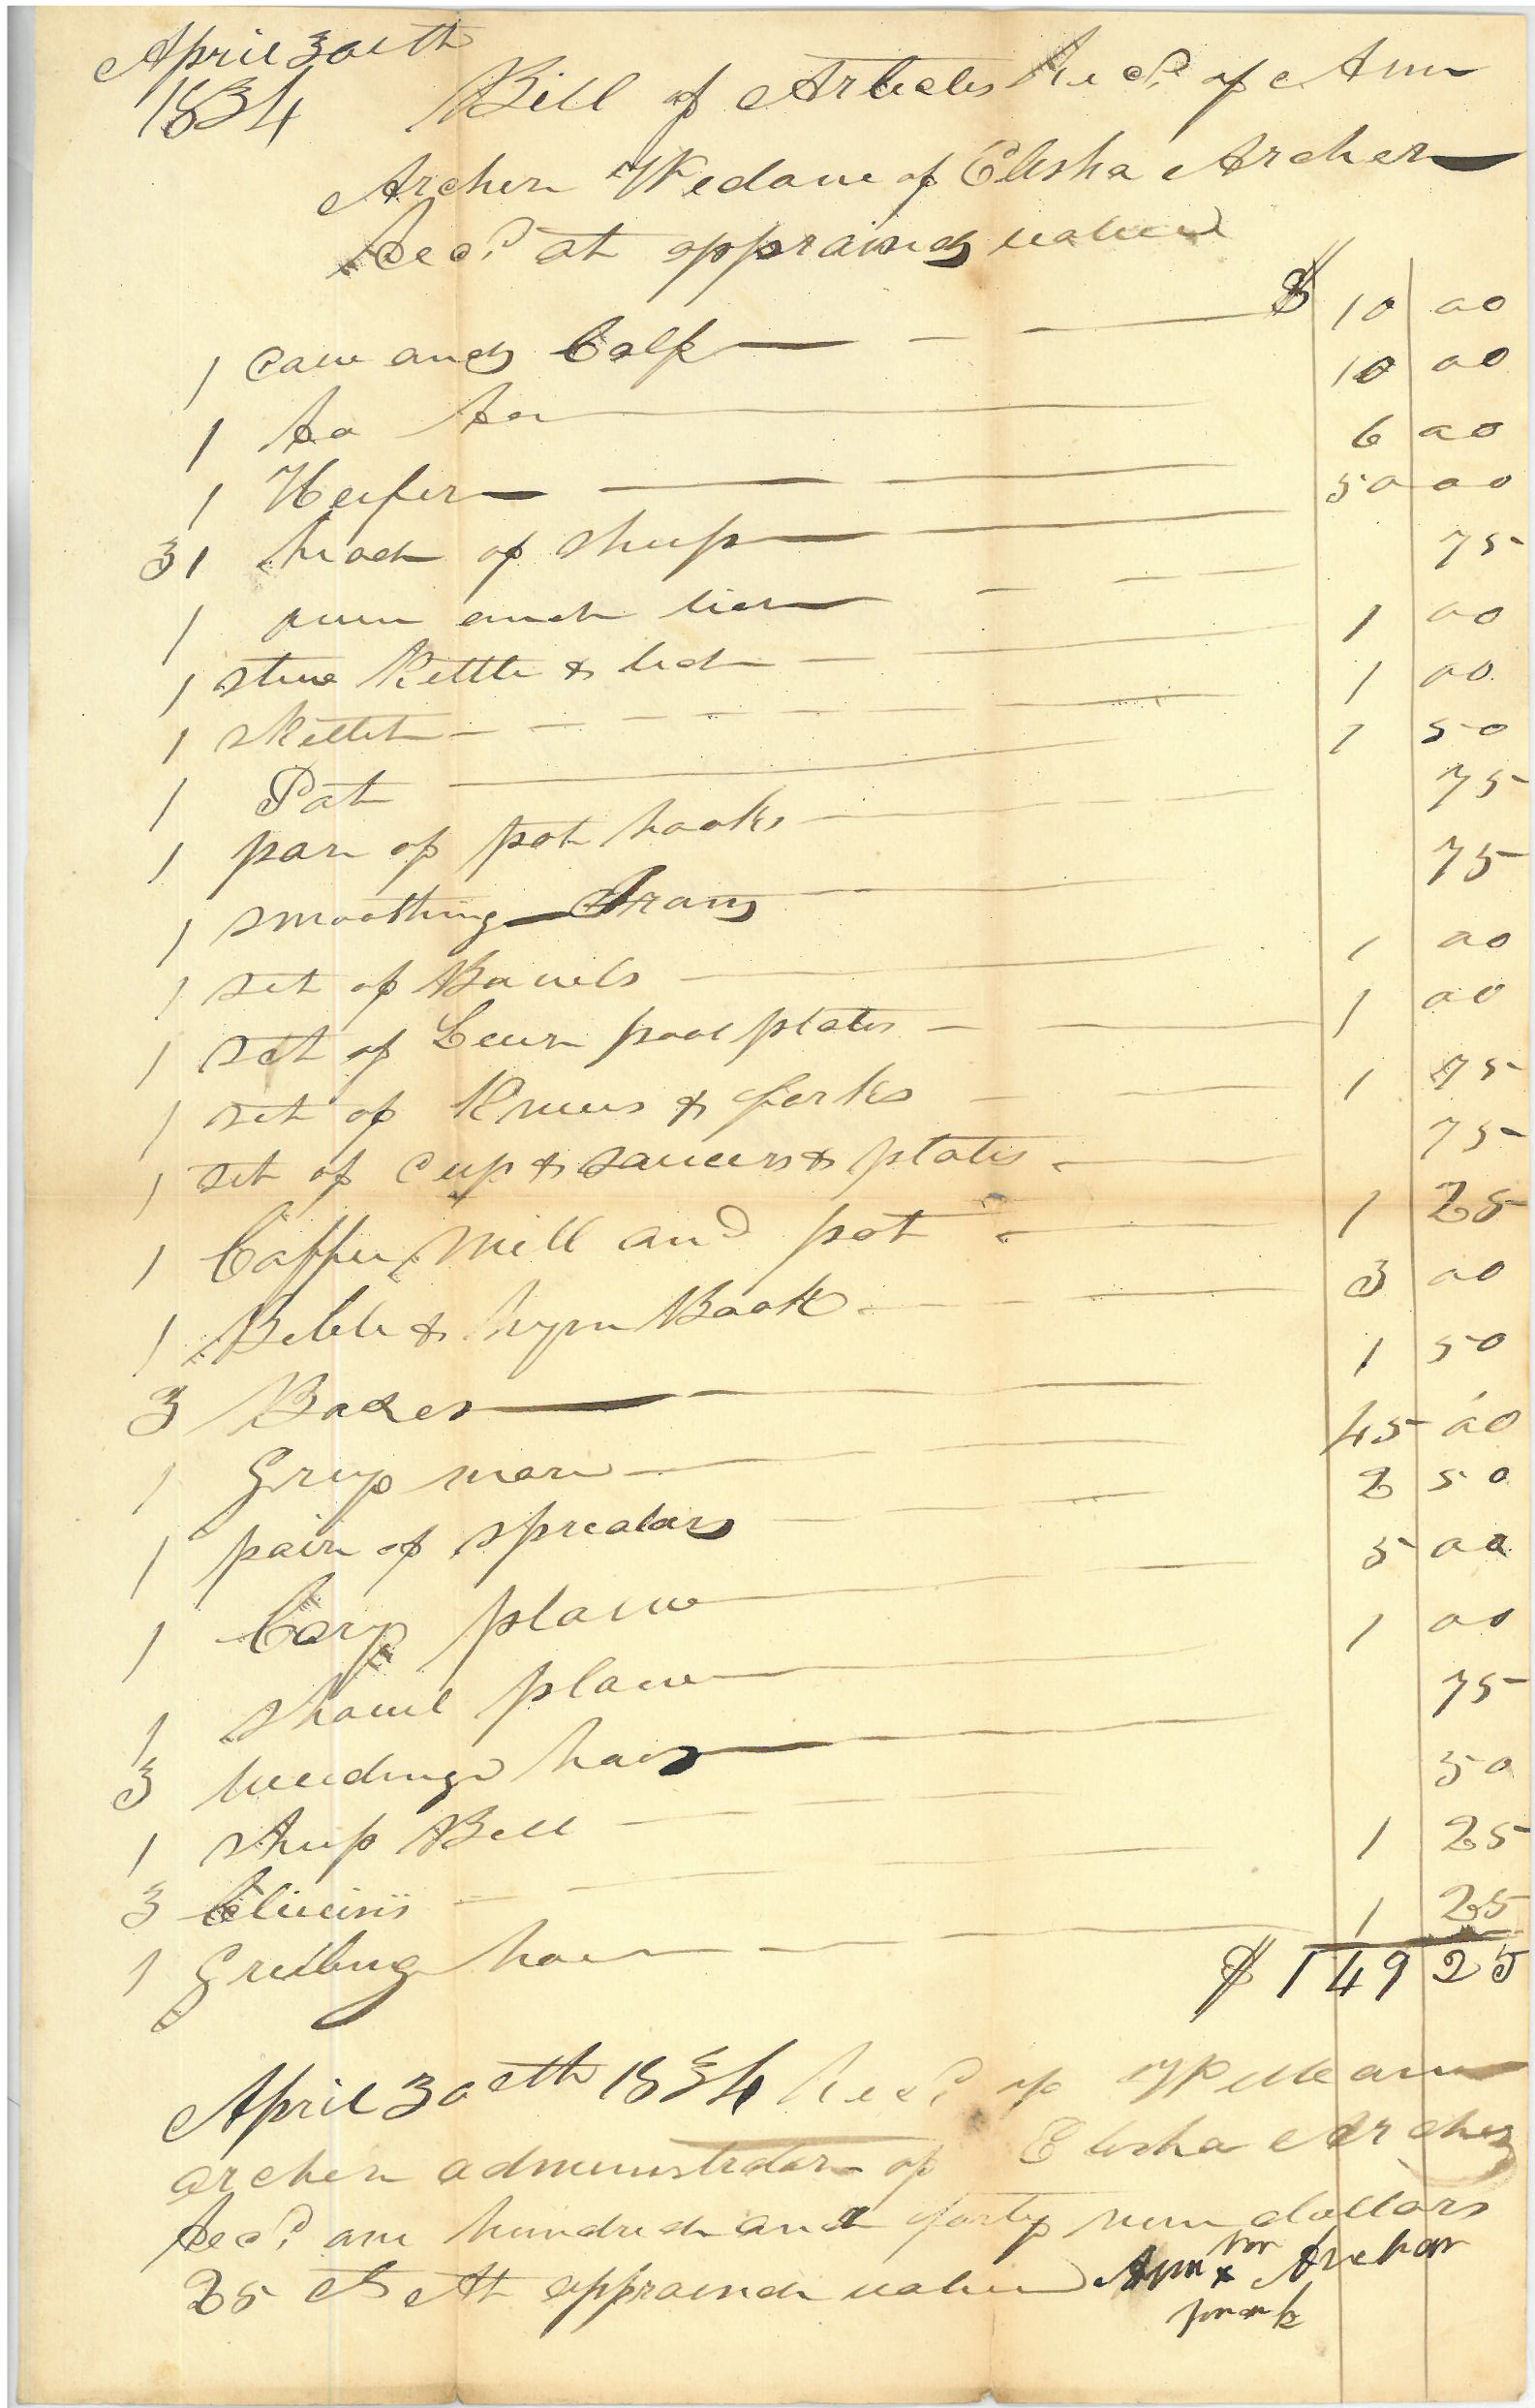 April 30th
1834 Bill of Articles Recd. of Ann
Archer Wedow of Elisha Archer
Decd. at appraind value
1 Cow and Calf $ 10 00
1 Do Do 10 00
1 Heifer 6 00
31 head of sheep 50 00
1 oven and lid 75
1 stew Kettle & lid 1 00
1 skillet 1 00
1 Pot 1 50
1 par of pot hooks 75
1 smoothing Irang 75
1 set of Bowels 1 00
1 set of plates 1 00
1 set of Knives & forks 1 75
1 set of cup & saucers & plates 75
1 Coffee Mill and pot 1 25
1 Bible & hym Book 3 00
3 Boxes 1 50
1 Gray mare 45 00
1 pair of spredars 2 50
1 Cary plow 5 00
1 shovel plow 1 00
3 weeding hows 75
1 sheep Bell 50
3 Clivises 1 25
1 Grubing how 1 25
$ 149 25
April 30th 1834 Recd. of William
archer administrator of Elisha Archer
Decd. one hundred and forty nine dollars
25 cts At appraind value Ann her x Archer
mark